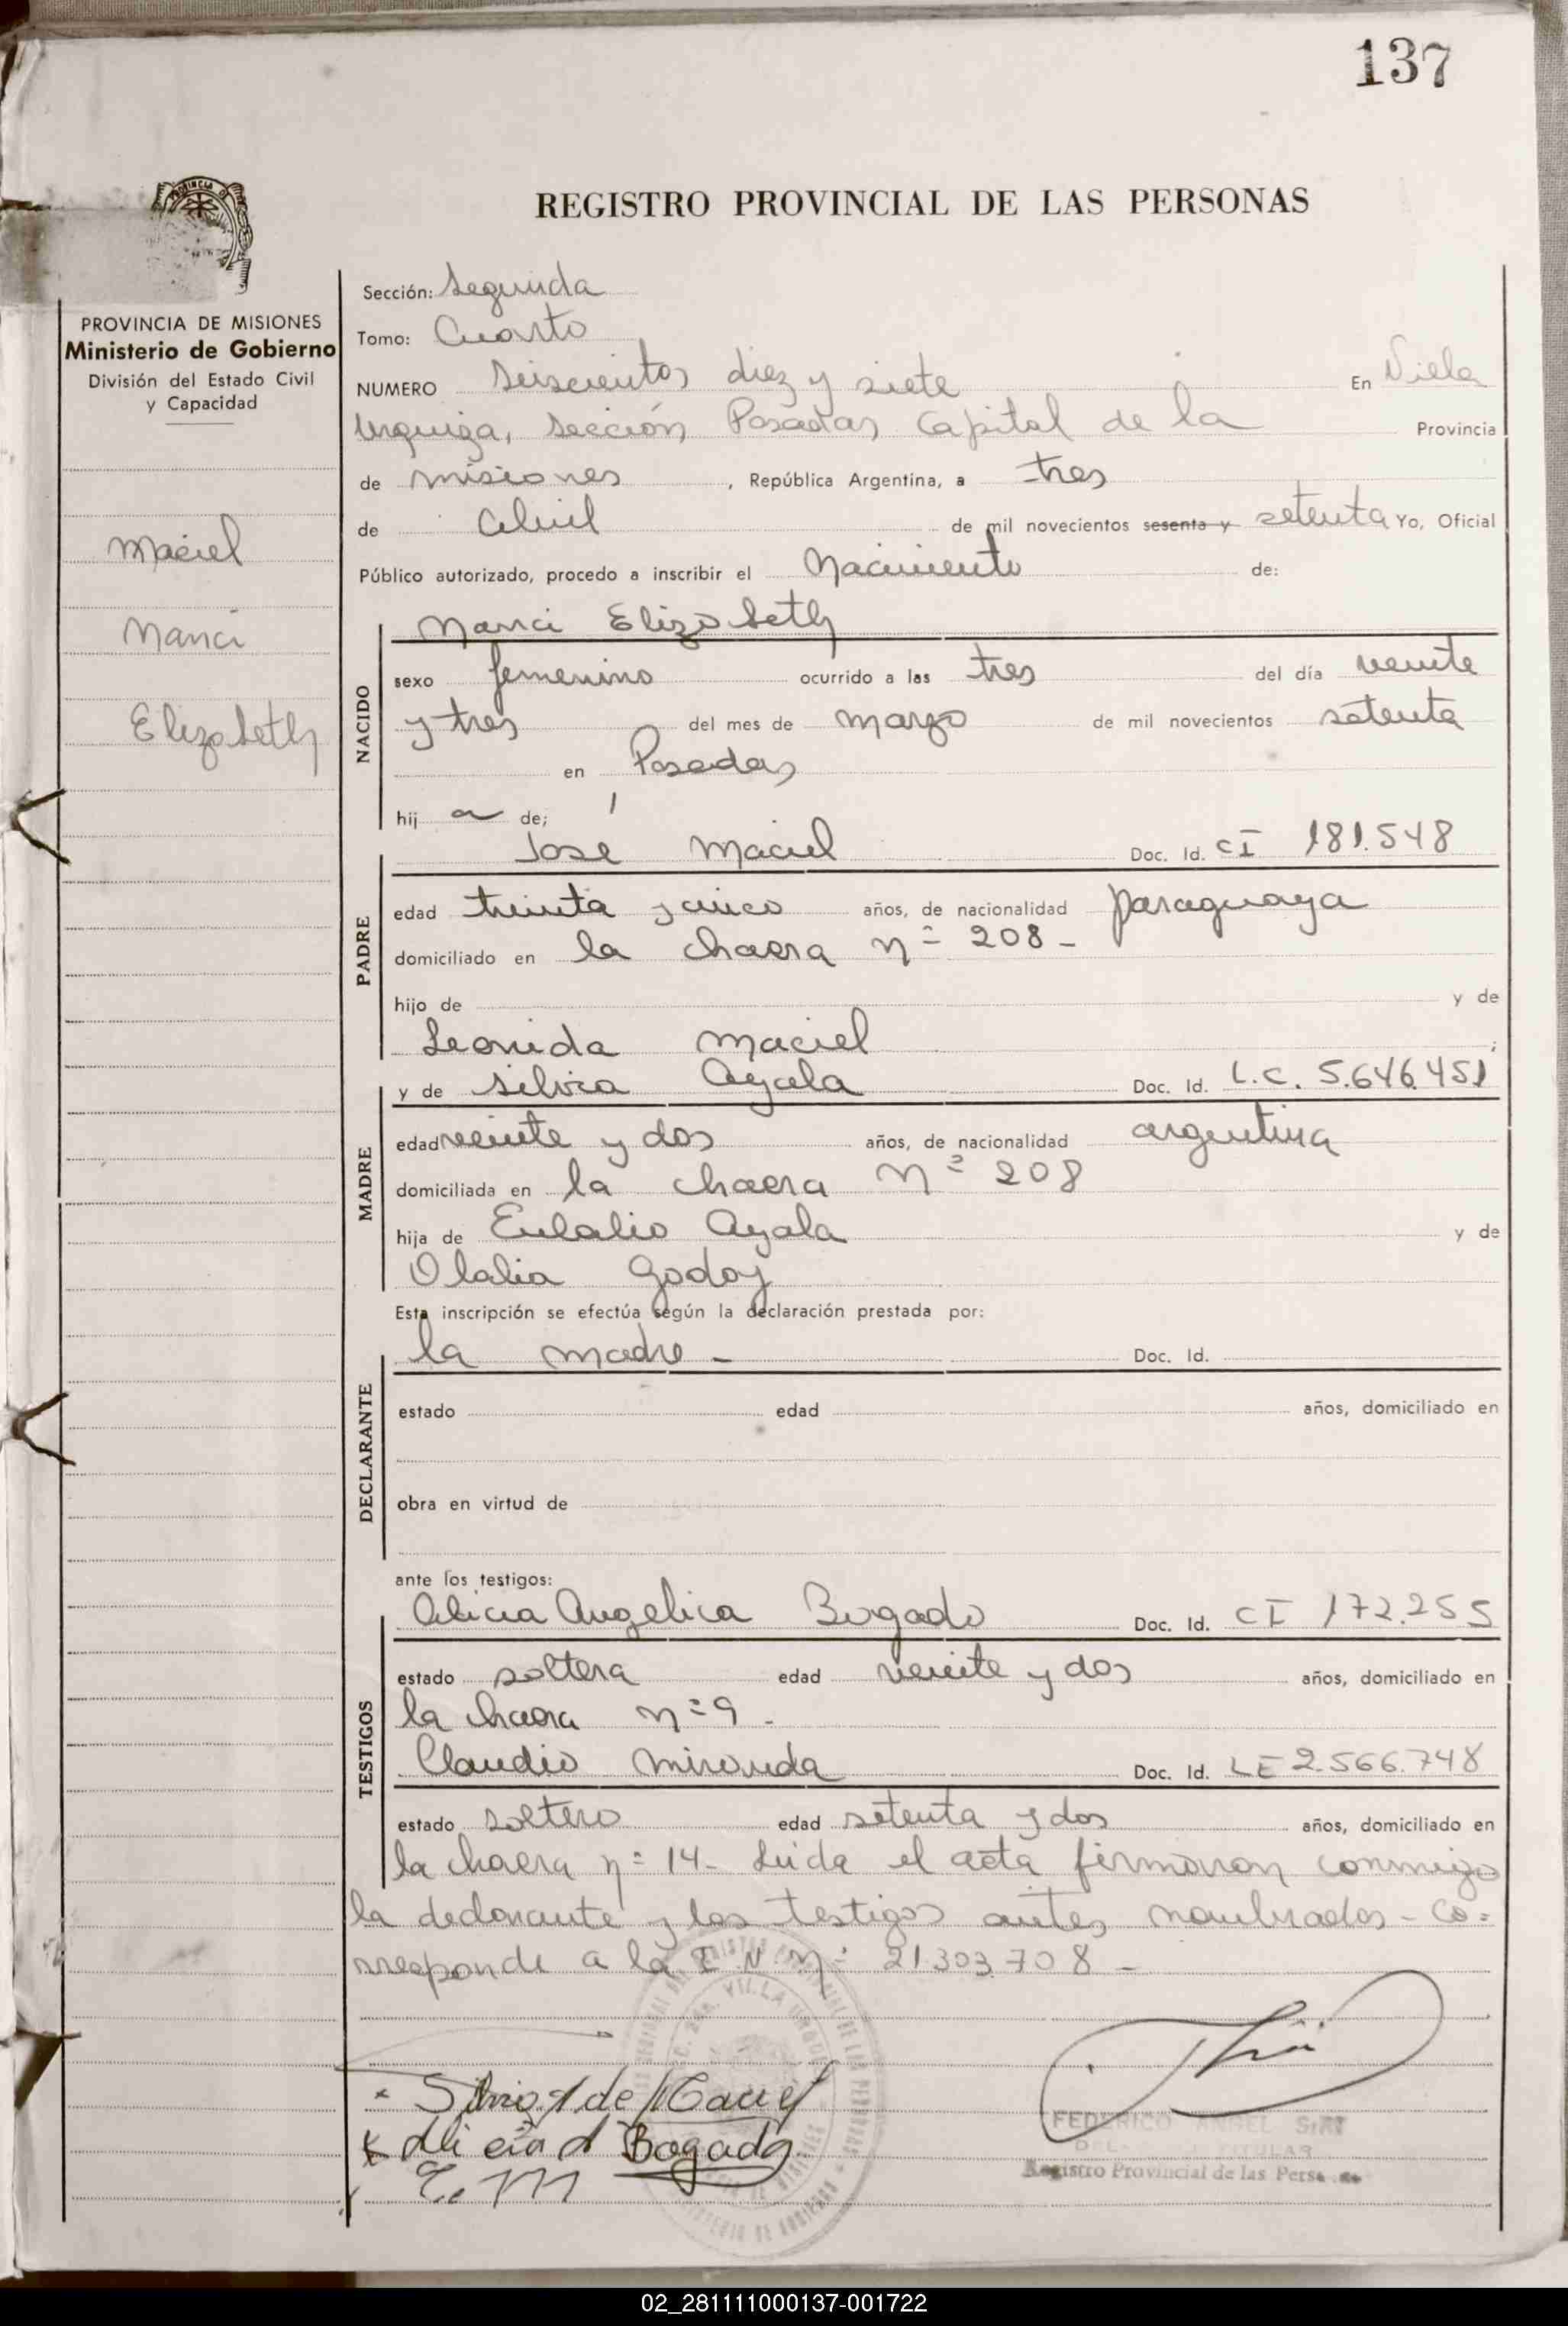 137
REGISTRO PROVINCIAL DE LAS PERSONAS
PROVINCIA DE MISIONES
Ministerio de Gobierno
División del Estado Civil
y Capacidad
Maciel
Nanci
Elizabeth
Sección: Segunda
Tomo: Cuarto
NUMERO Seiscientos diez y siete En Viela
Urquiza, Sección Posadas Capital de la Provincia
de misiones, República Argentina, a tres
de Abril de mil novecientos sesenta y setenta Yo, Oficial
Público autorizado, procedo a inscribir el Nacimiento de:
NACIDO
Nanci Elizabeth
sexo femenino ocurrido a las tres del día veinte
y tres del mes de marzo de mil novecientos setenta
en Posadas
hij a de;
PADRE
José Maciel Doc. Id. CI 181.548
edad treinta y cinco años, de nacionalidad paraguaya
domiciliado en la chacra nº 208-
hijo de y de
Leonida Maciel ;
MADRE
y de Silvia Ayala Doc. Id. L.C. 5.646.451
edad veinte y dos años, de nacionalidad argentina
domiciliada en la chacra nº 208
hija de Eulalio Ayala y de
Olalia Godoy
Esta inscripción se efectúa según la declaración prestada por:
DECLARANTE
la madre - Doc. Id.
estado edad años, domiciliado en
obra en virtud de
ante los testigos:
TESTIGOS
Alicia Angelica Bogado Doc. Id. CI 172.255
estado soltera edad veinte y dos años, domiciliado en
la chacra nº 9 -
Claudio Miranda Doc. Id. LE 2.566.748
estado soltero edad setenta y dos años, domiciliado en
la chacra nº 14- Leida el acta firmaron conmigo
la declarante y los testigos antes nombrados - Co=
rresponde a la nº 21.303.708 -
Silvia A de Maciel
Alicia A Bogado
C. M
FEDERICO ANGEL
TITULAR
Registro Provincial de las Personas
02_281111000137-001722